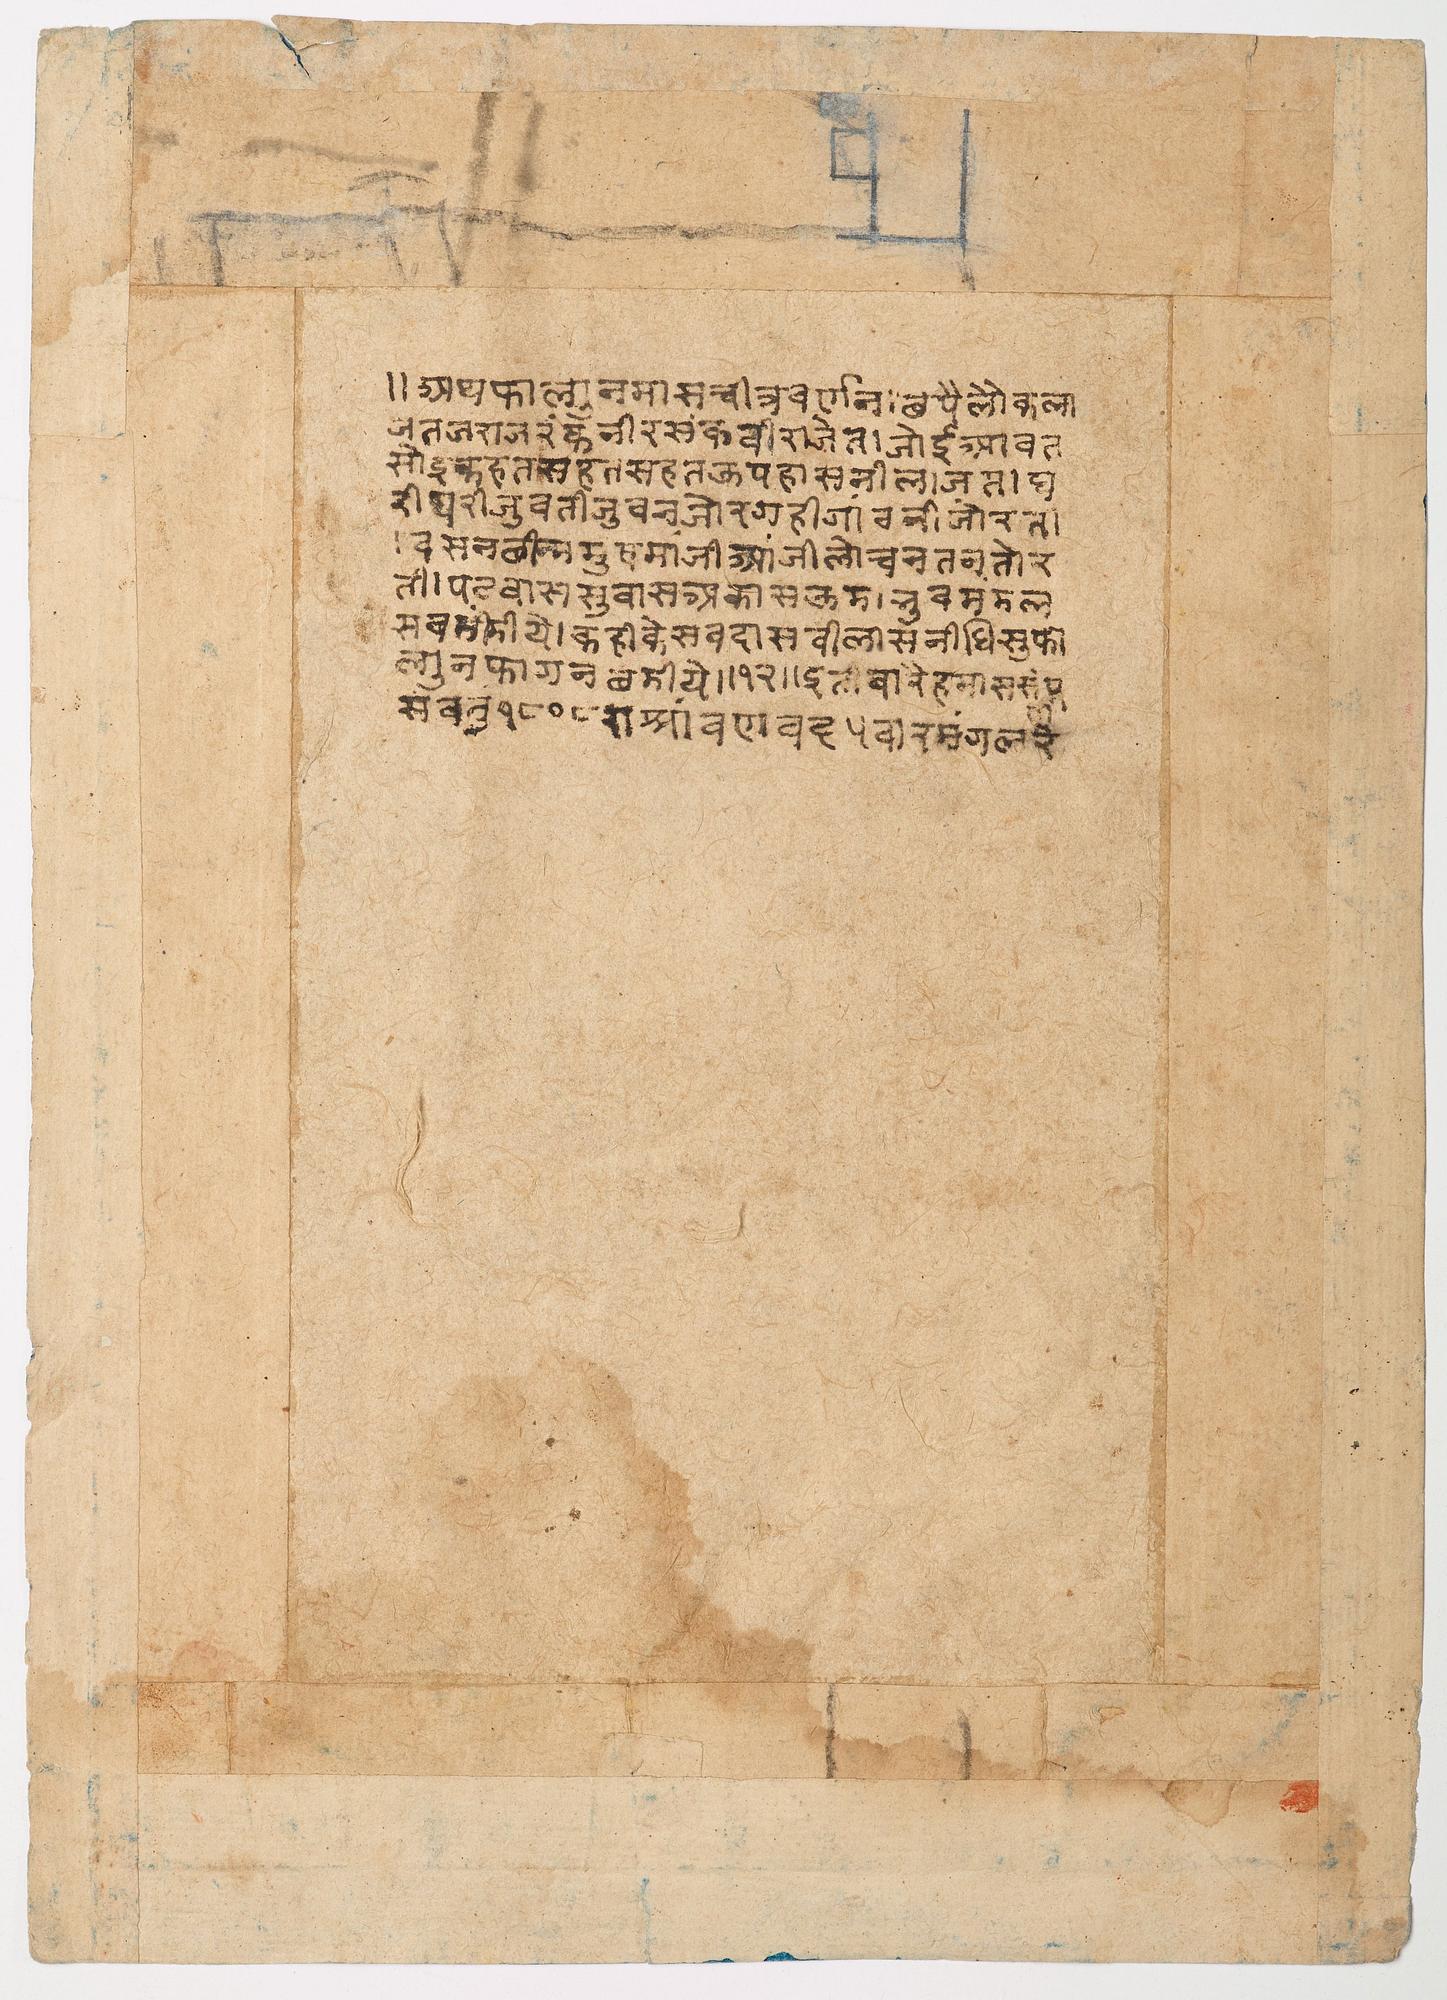 ॥अथ फाल्गुनमास चीत्र वर्णन।छपै लोक ला
ज तज राज रंक नीरसंक वीराजत।जोई आवत
सोइ कहत सहत सहत ऊपहास नी लाजत।घ
री घरी जुवती जुवन जोर गही गांवनी जोरत।
।वसन छीन्म मुष मांजी आंजी लोचन तन तोर
ती।पटवास सुवास अकास ऊम।नुव मंमल
सब मंमीये।कही केसवदास वीलास नीधि सु फा
ल्गुन फागन छमीये।।।१२।।इती बारेहमास संपू
संवनुं १८०८ रा श्रांवण वद ५ वार मंगल रे